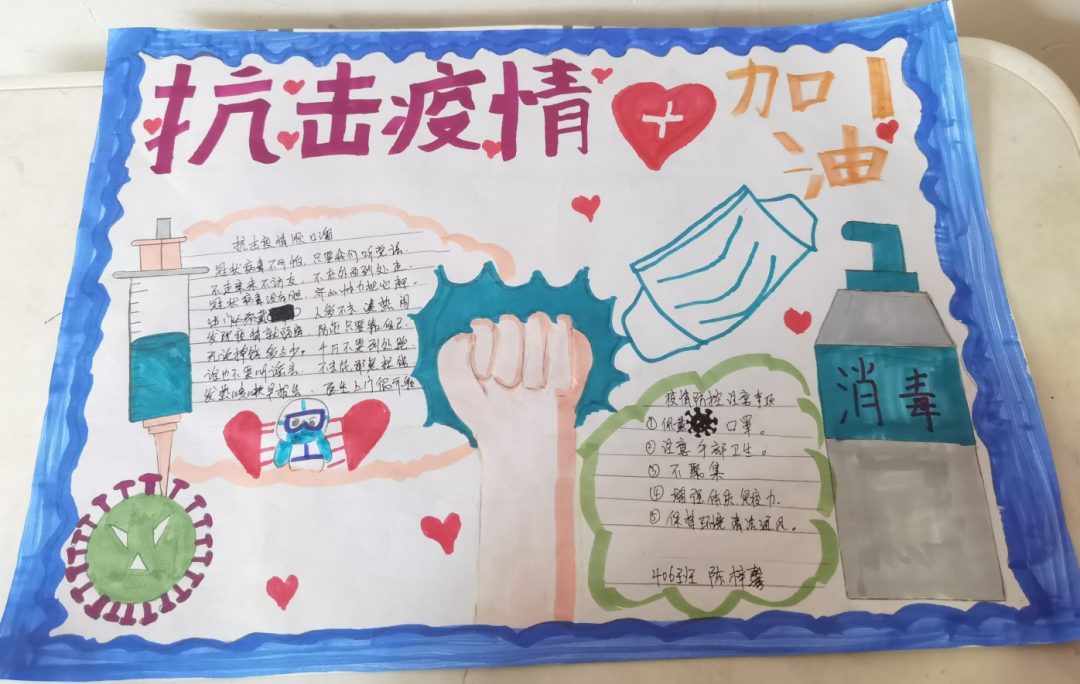 抗击疫情
加油!
抗击疫情顺口溜
冠状病毒不可怕，只要我们听党话。
不走亲来不访友，不去外面到处走。
冠状病毒没有胆，
出门 人多不去凑热闹
发现疫情就隔离，防范只要靠自己。
无论挣钱多与少。千万不要到处跑。
谁也不要听谣言，
发热咳嗽早报告、医生上门
消毒
疫情防控注意事项
①佩戴口罩。
②注意手部卫生。
③不聚集
④增强体质免疫力.
⑤保持环境清洁通风。
406班 陈梓馨